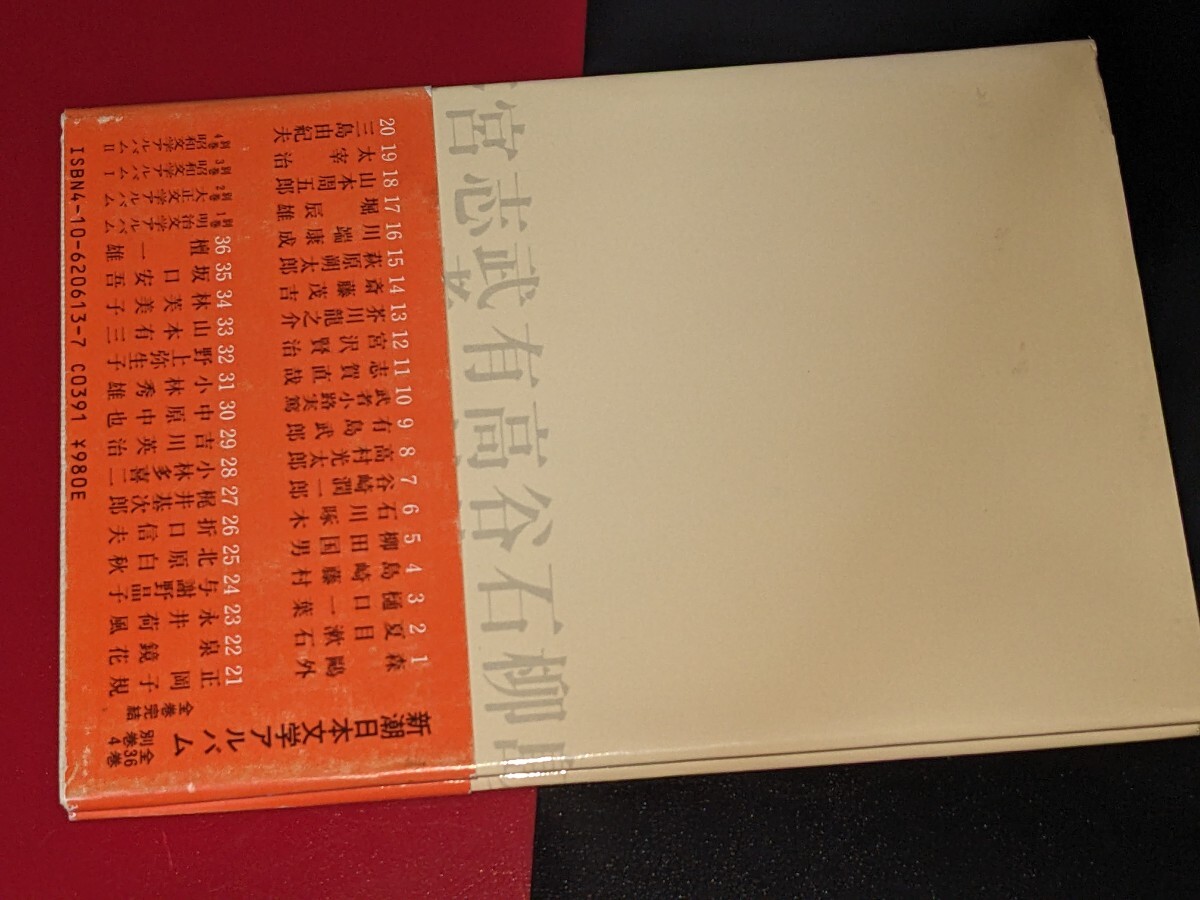 新潮
日本文学
アルバム
全36巻
別巻4巻
全巻完結
1 森鷗外
2 夏目漱石
3 樋口一葉
4 島崎藤村
5 柳田国男
6 石川啄木
7 谷崎潤一郎
8 高村光太郎
9 有島武郎
10 武者小路実篤
11 志賀直哉
12 宮沢賢治
13 芥川龍之介
14 斎藤茂吉
15 萩原朔太郎
16 川端康成
17 堀辰雄
18 山本周五郎
19 太宰治
20 三島由紀夫
21 正岡子規
22 泉鏡花
23 永井荷風
24 与謝野晶子
25 北原白秋
26 折口信夫
27 梶井基次郎
28 小林多喜二
29 吉川英治
30 中原中也
31 小林秀雄
32 野上弥生子
33 山本有三
34 林芙美子
35 坂口安吾
36 檀一雄
別巻1 明治文学アルバム
別巻2 大正文学アルバム
別巻3 昭和文学アルバムI
別巻4 昭和文学アルバムII
ISBN4-10-620613-7 C0391 ¥980E
柳石谷高有武志宮